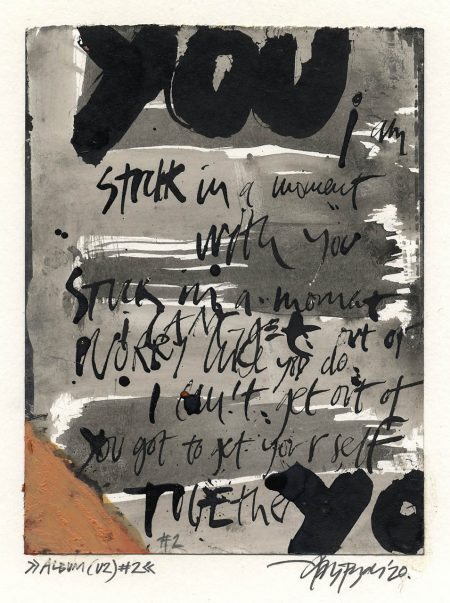 YOU
i am
stuck in a moment
with you
stuck in a moment
I CAN'T get out of
WORRY like you do.
I can't get out of
you got to get yourself
TOGETHER YO
#2
»ALBUM (U2) #2« '20.